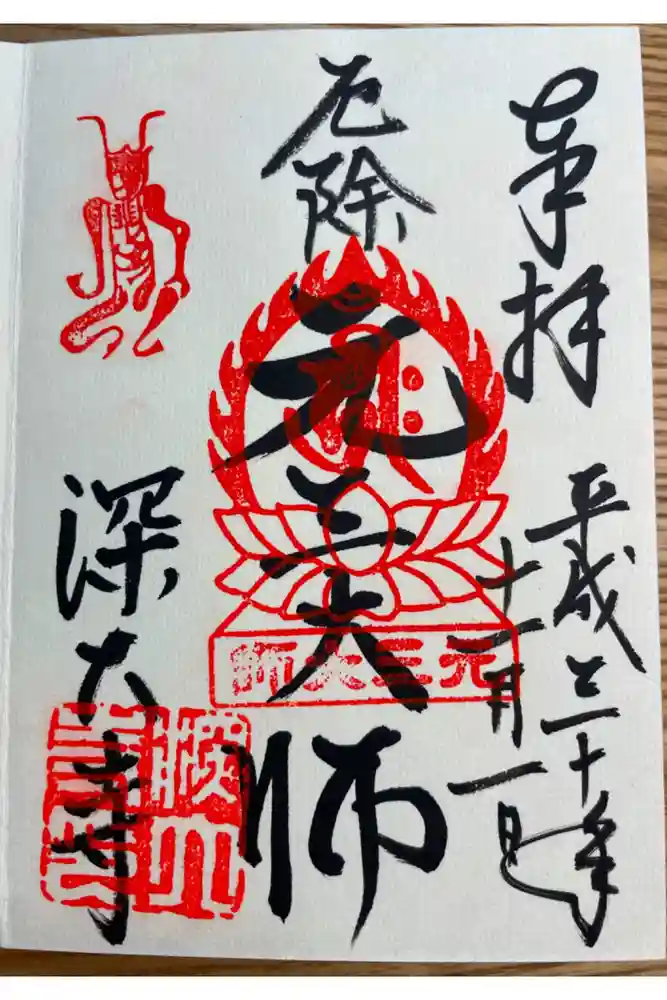 奉拝
平成三十年
十二月一日
厄除
元三大師
元三大師
深大寺